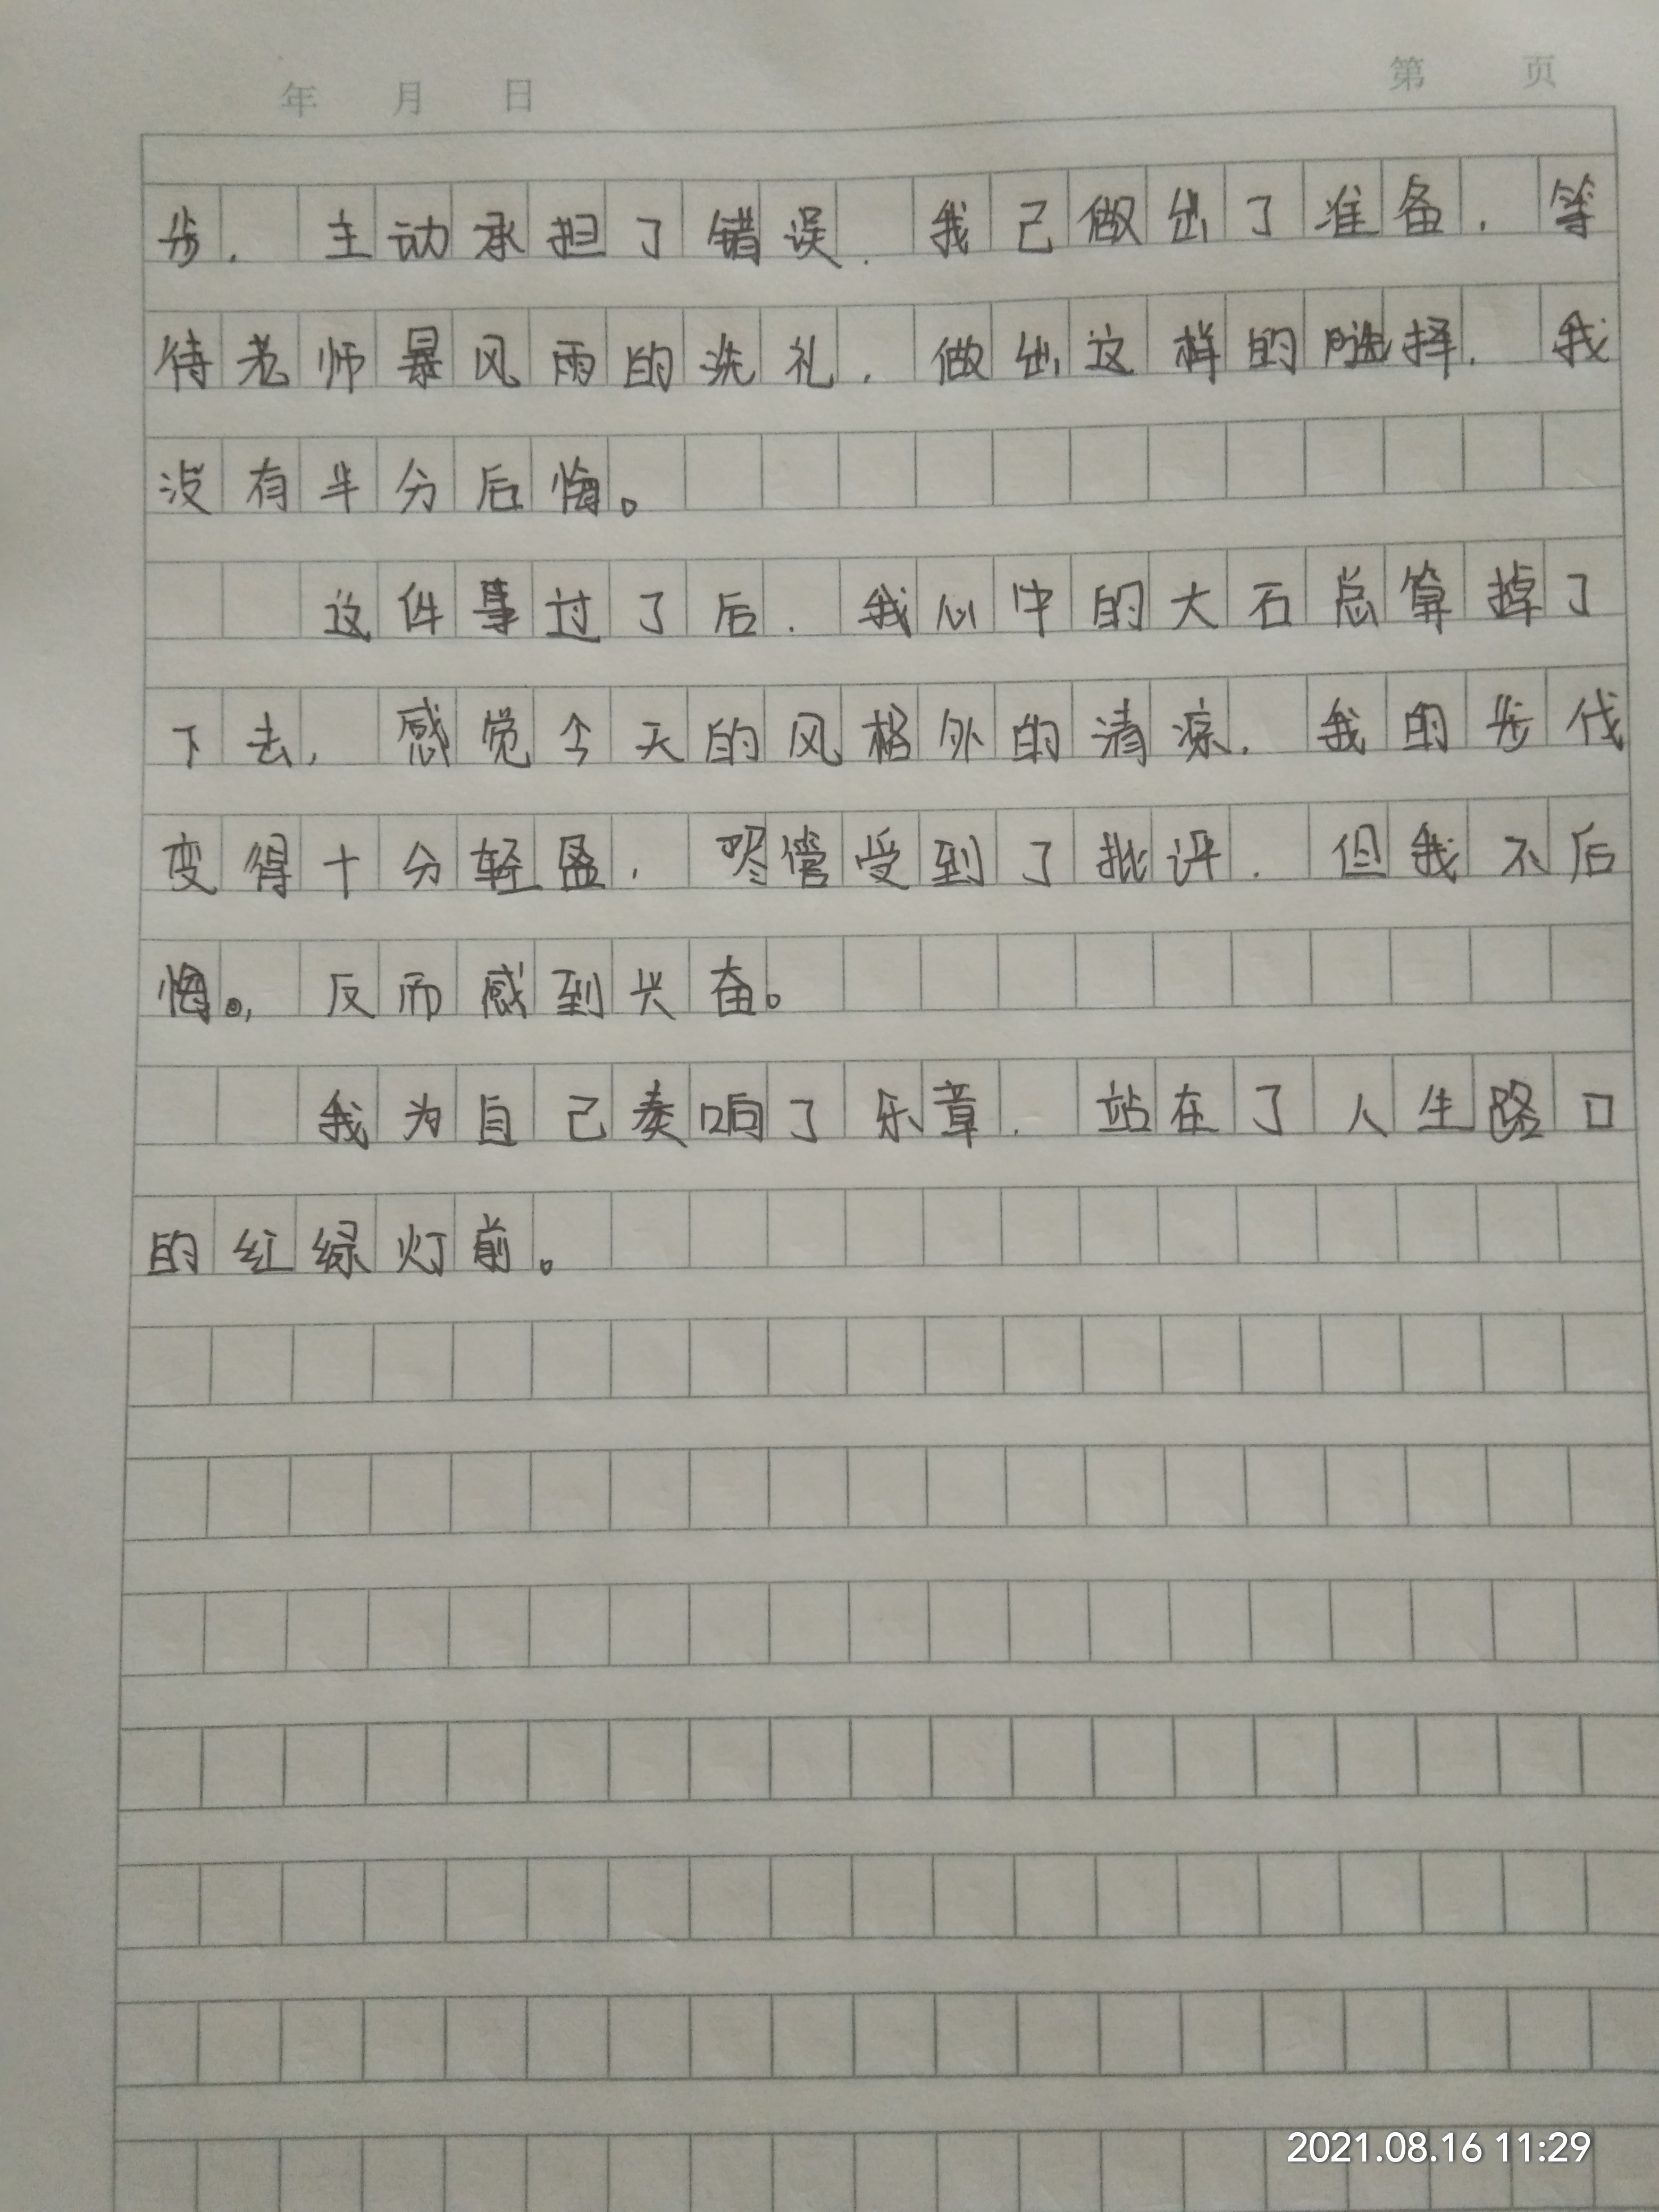 年 月 日 第 页
步，主动承担了错误，我己做出了准备，等
待老师暴风雨的洗礼，做出这样的选择，我
没有半分后悔。
这件事过了后，我心中的大石总算掉了
下去，感觉今天的风格外的清凉，我的步伐
变得十分轻盈，尽管受到了批评，但我不后
悔。，反而感到兴奋。
我为自己奏响了乐章，站在了人生路口
的红绿灯前。
2021.08.16 11:29